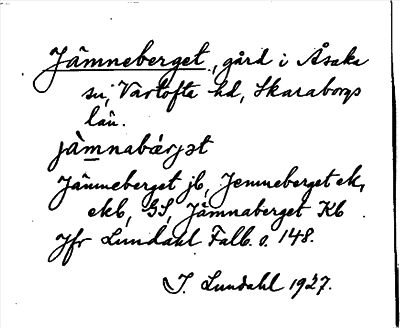 Jämneberget, gård i Åsaka
sn, Vartofta hd, Skaraborgs
län.
jàmnabærjət
Jämneberget jb, Jemneberget ek,
ekb, GS, Jämnaberget Kb
Jfr Lundahl Falb. s. 148.
I. Lundahl 1927.